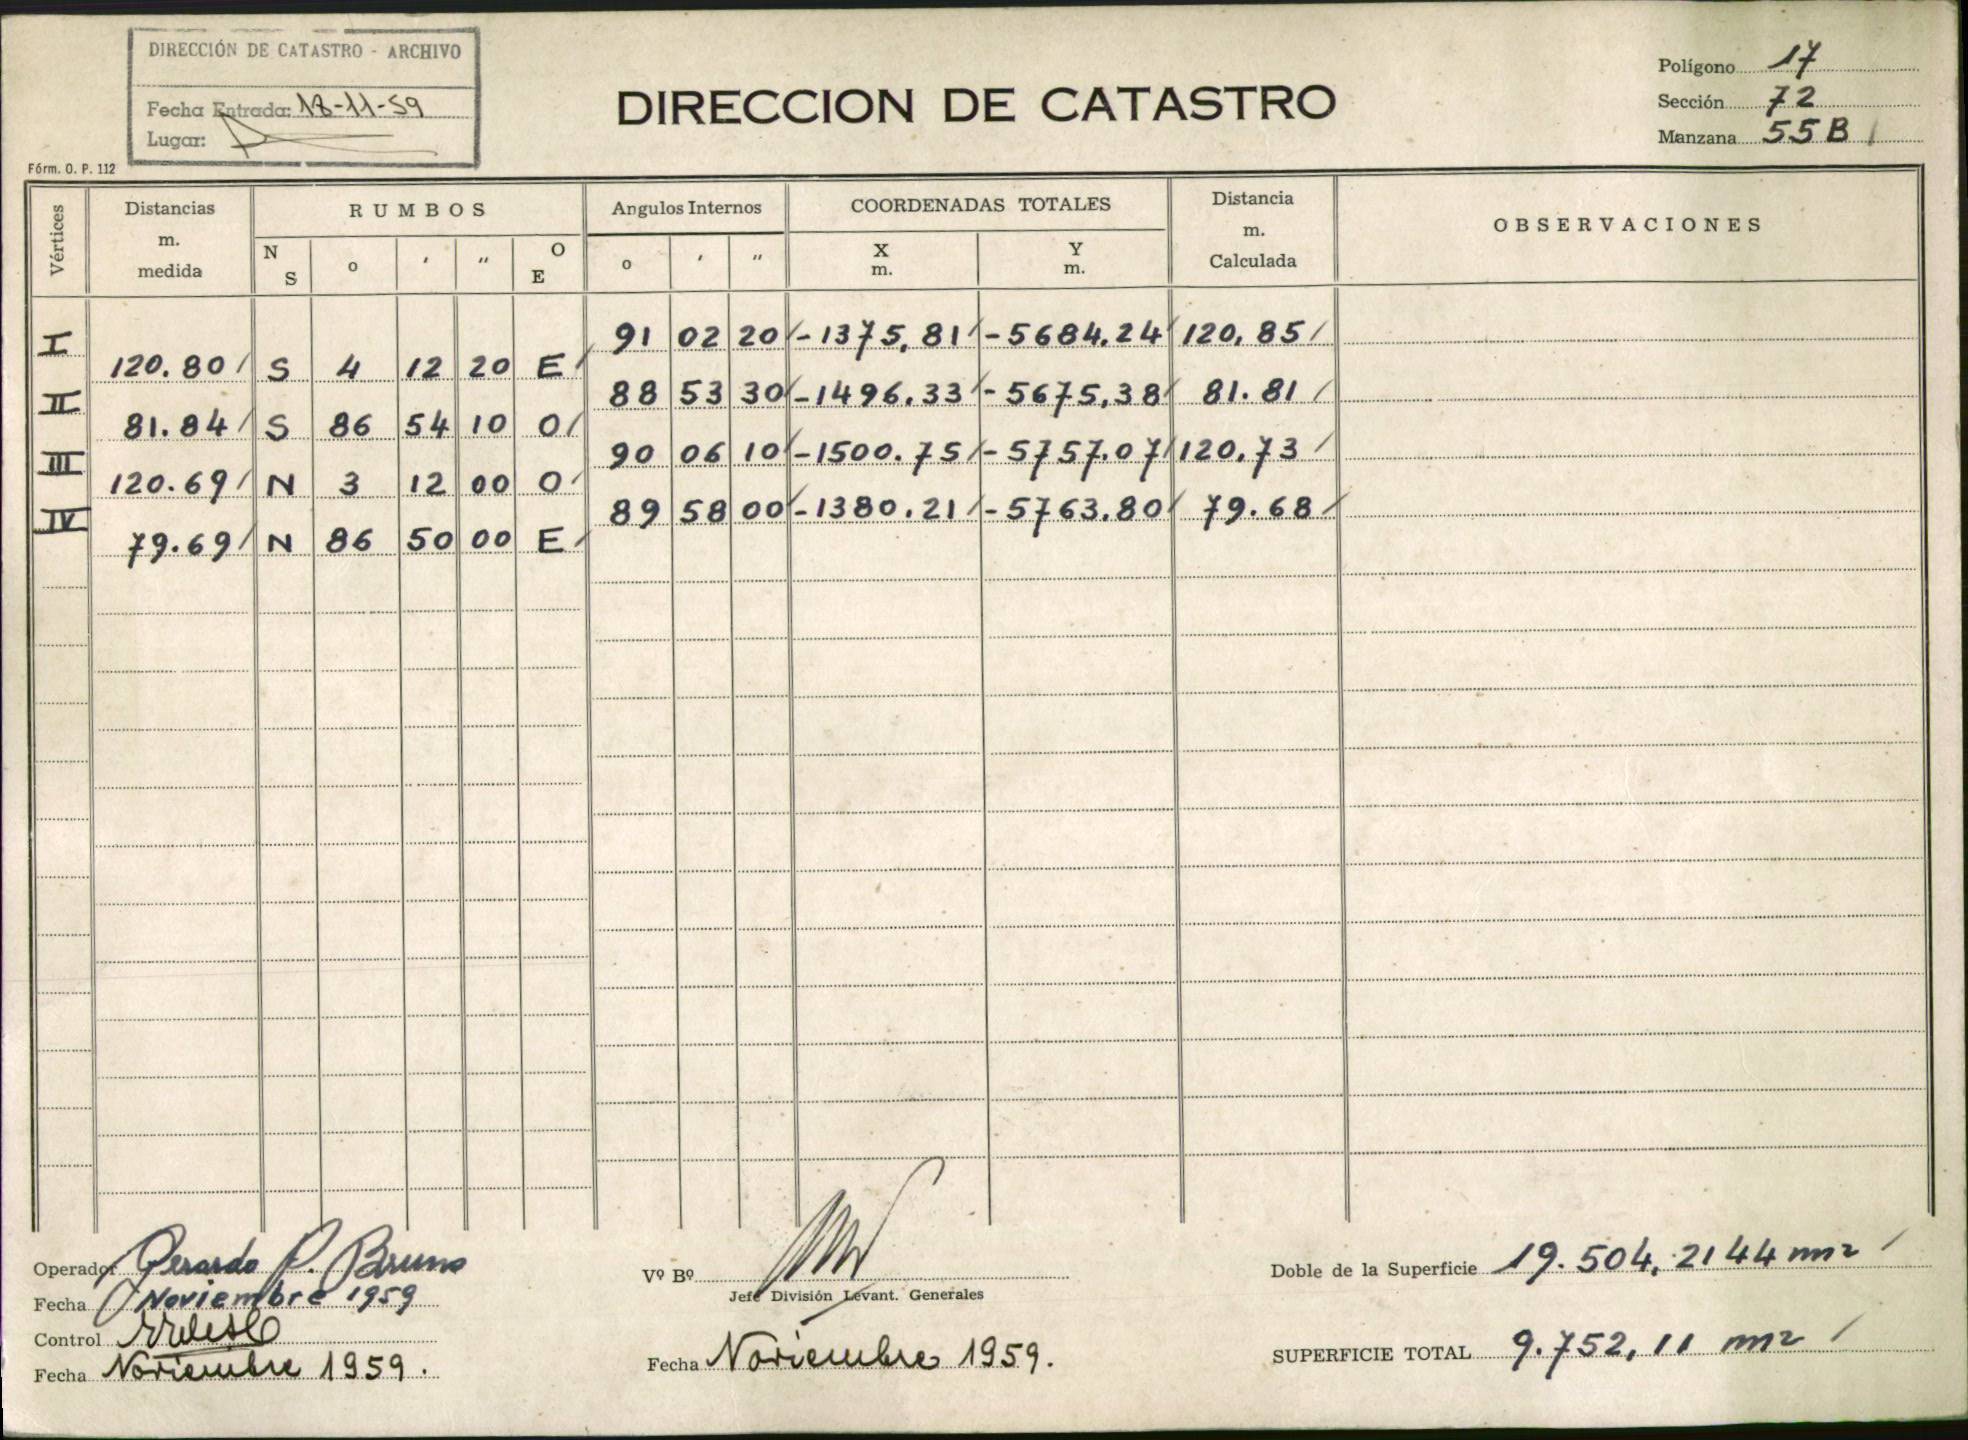 DIRECCIÓN DE CATASTRO - ARCHIVO
Fecha Entrada: 18-11-59
Lugar:
DIRECCION DE CATASTRO
Polígono 17
Sección 72
Manzana 55B
Fórm. O. P. 112
Vértices
Distancias m. medida
RUMBOS
N S
o ' "
O E
Angulos Internos
o ' "
COORDENADAS TOTALES
X m.
Y m.
Distancia m. Calculada
OBSERVACIONES
I 91 02 20 -1375,81 -5684.24 120,85
120.80 S 4 12 20 E
II 88 53 30 -1496.33 -5675,38 81.81
81.84 S 86 54 10 O
III 90 06 10 -1500.75 -5757.07 120,73
120.69 N 3 12 00 O
IV 89 58 00 -1380.21 -5763.80 79.68
79.69 N 86 50 00 E
Operador Gerardo P. Bruno
Fecha Noviembre 1959
Control
Fecha Noviembre 1959.
Vº Bº
Jefe División Levant. Generales
Fecha Noviembre 1959.
Doble de la Superficie 19.504,2144 m2
SUPERFICIE TOTAL 9.752,11 m2